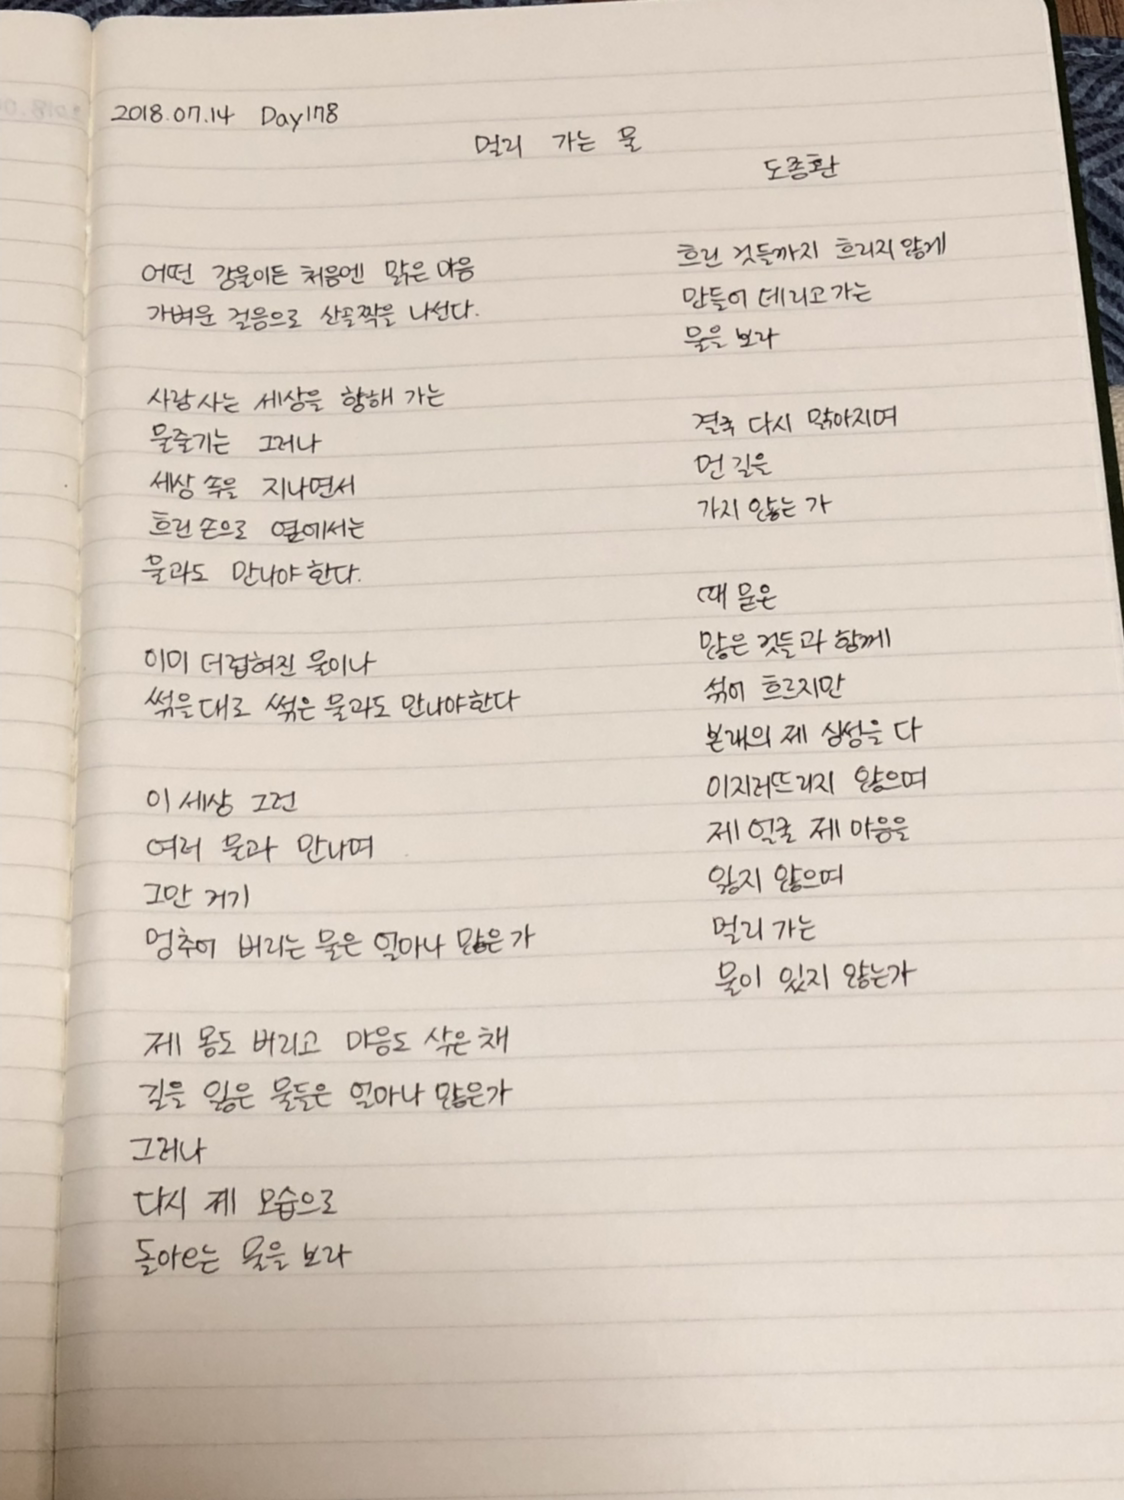 2018.07.14 Day178
멀리 가는 물
도종환
어떤 강물이든 처음엔 맑은 마음
가벼운 걸음으로 산골짝을 나선다.
사람사는 세상을 향해 가는
물줄기는 그러나
세상 속을 지나면서
흐린 손으로 옆에서는
물과도 만나야한다.
이미 더럽혀진 물이나
썪을대로 썪은 물과도 만나야한다
이 세상 그런
여러 물과 만나며
그만 거기
멈추어 버리는 물은 얼마나 많은가
제 몸도 버리고 마음도 삭은채
길을 잃은 물들은 얼마나 많은가
그러나
다시 제 모습으로
돌아오는 물을 보라
흐린 것들까지 흐리지 않게
만들어 데리고가는
물을 보라
결국 다시 맑아지며
먼 길을
가지 않는 가
때 묻은
많은 것들과 함께
섞어 흐르지만
본래의 제 심성을 다
이지러뜨리지 않으며
제 얼굴 제 마음을
잃지 않으며
멀리 가는
물이 있지 않는가